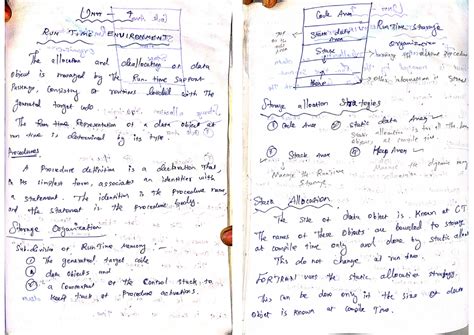 Unit - 4
RUN TIME ENVIRONMENT
The allocation and deallocation of data
object is managed by the Run time Support
Package, consisting of routines loaded with the
generated target into
The Run time Representation of a data object at
run time is determined by its type.
Procedures
A Procedure definition is a declaration that
its simplest form, associates an identifier with
a statement. The identifier is the Procedure name,
and the statement is the Procedure body.
Storage Organization
Sub-division of RunTime Memory:
① The generated target code
② data objects and
③ a counterpart of the Control stack to
keep track of Procedure activations.
Code Area
Static data Area
Stack
heap
RunTime Storage
Organization
Storage allocation Strategies
① Code Area ② Static data Area
③ Stack Area ④ Heap Area
Manage the RunTime
Storage
Allocation
The size of data object is known at CT
The names of these objects are bounded to storage
at compile time only and done by static
This do not change at run time
FORTRAN uses the static allocation strategy.
This can be done only if the size of data
object is known at compile time.